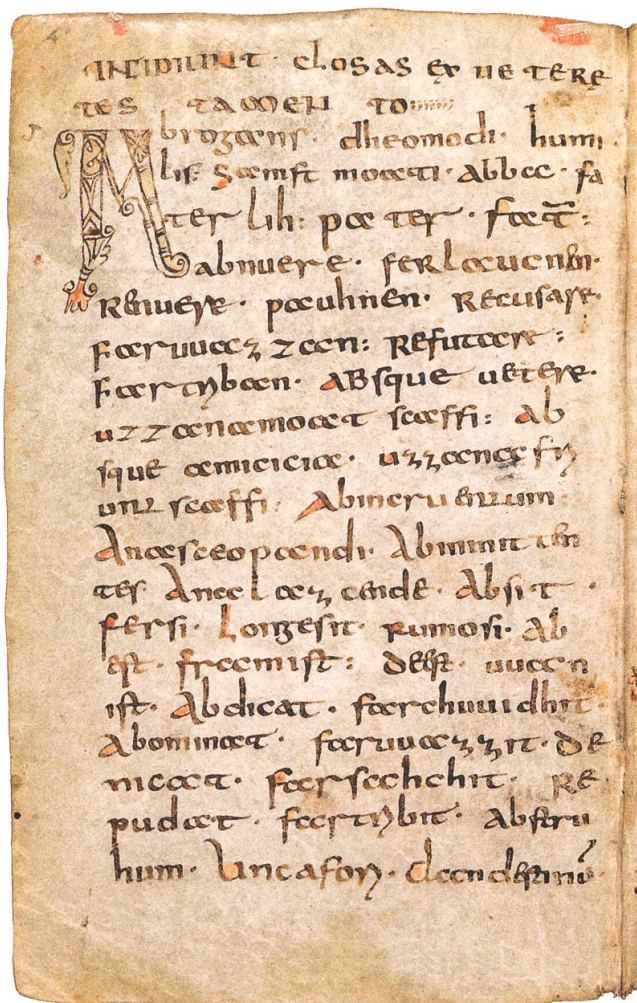 INCIPIUNT · CLOSAS EX UETERE
TES TAMEN TO
Abrogans · dheomodi · humi
lis: samft moati · abba · fa
ter lih: pater · fać:
abnuere · ferlaucnen·
Renuere · pauhnen · Recusare·
Faruuazzan: Refutare:
Fartriban · ABsque uetere·
uzzana moat scaffi: Ab
sque amiciciа · uzzana fri
unt scaffi: Abincruentum:
Anasceopandi · Abinmitten
tes Anelazende · Absit ·
fersi · Longesit · rumosi · Ab
est · framist: deest · uuan
ist · Abdicat · farchuuidhit·
Abominat · faruuazzit · de
nicat · farsahchit · Re
pudat · fartribit · Abstru
hum · Uncafori · clandestinū·